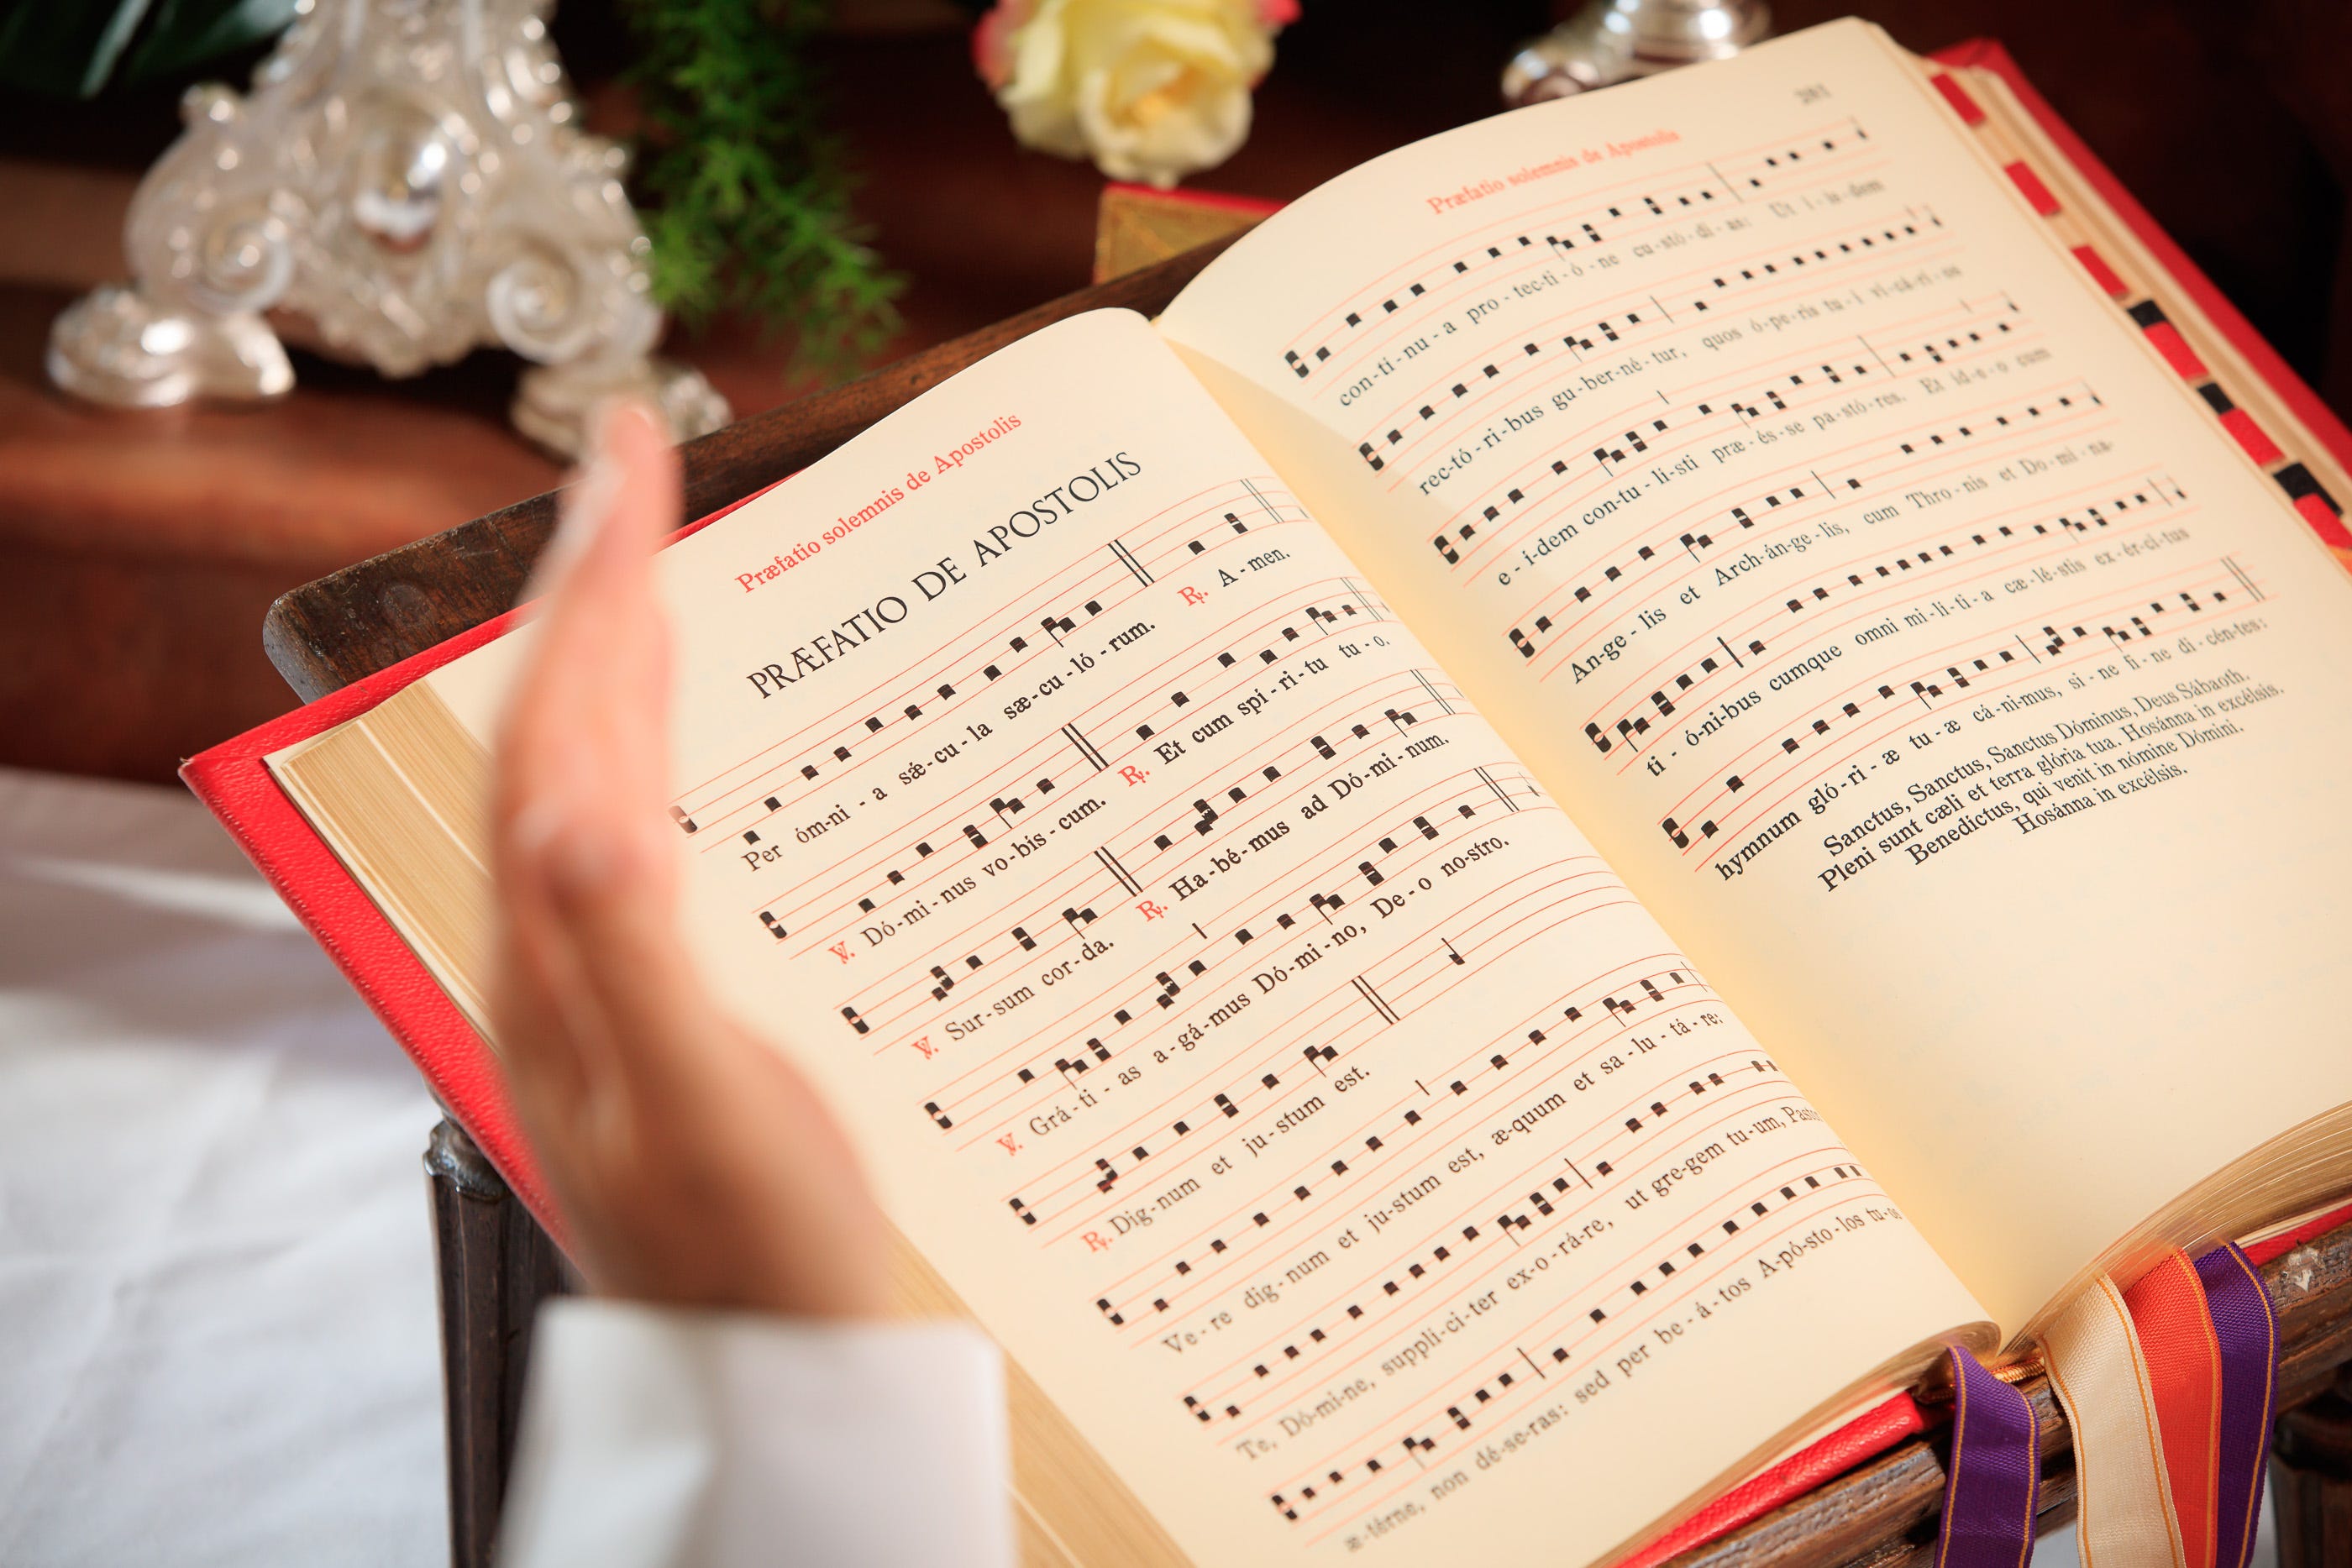 Præfatio solemnis de Apostolis
PRÆFATIO DE APOSTOLIS
Per óm-ni-a sǽ-cu-la sæ-cu-ló-rum. ℟. A-men.
℣. Dó-mi-nus vo-bis-cum. ℟. Et cum spí-ri-tu tu-o.
℣. Sur-sum cor-da. ℟. Ha-bé-mus ad Dó-mi-num.
℣. Grá-ti-as a-gá-mus Dó-mi-no, De-o no-stro.
℟. Dig-num et ju-stum est.
Ve-re dig-num et ju-stum est, æ-quum et sa-lu-tá-re:
Te, Dó-mi-ne, suppli-ci-ter ex-o-rá-re, ut gre-gem tu-um,
æ-térne, non dé-se-ras: sed per be-á-tos A-pó-sto-los tu-os
Præfatio solemnis de Apostolis
con-tí-nu-a pro-tec-ti-ó-ne cu-stó-di-as: Ut i-ís-dem
rec-tó-ri-bus gu-ber-né-tur, quos ó-pe-ris tu-i vi-cá-ri-os
e-í-dem con-tu-lí-sti præ-és-se pa-stó-res. Et íd-e-o cum
An-ge-lis et Arch-án-ge-lis, cum Thro-nis et Do-mi-na-
ti-ó-ni-bus cumque omni mi-lí-ti-a cæ-lé-stis ex-ér-ci-tus
hymnum gló-ri-æ tu-æ cá-ni-mus, si-ne fi-ne di-cén-tes:
Sanctus, Sanctus, Sanctus Dóminus, Deus Sábaoth.
Pleni sunt cæli et terra glória tua. Hosánna in excélsis.
Benedictus, qui venit in nómine Dómini.
Hosánna in excélsis.